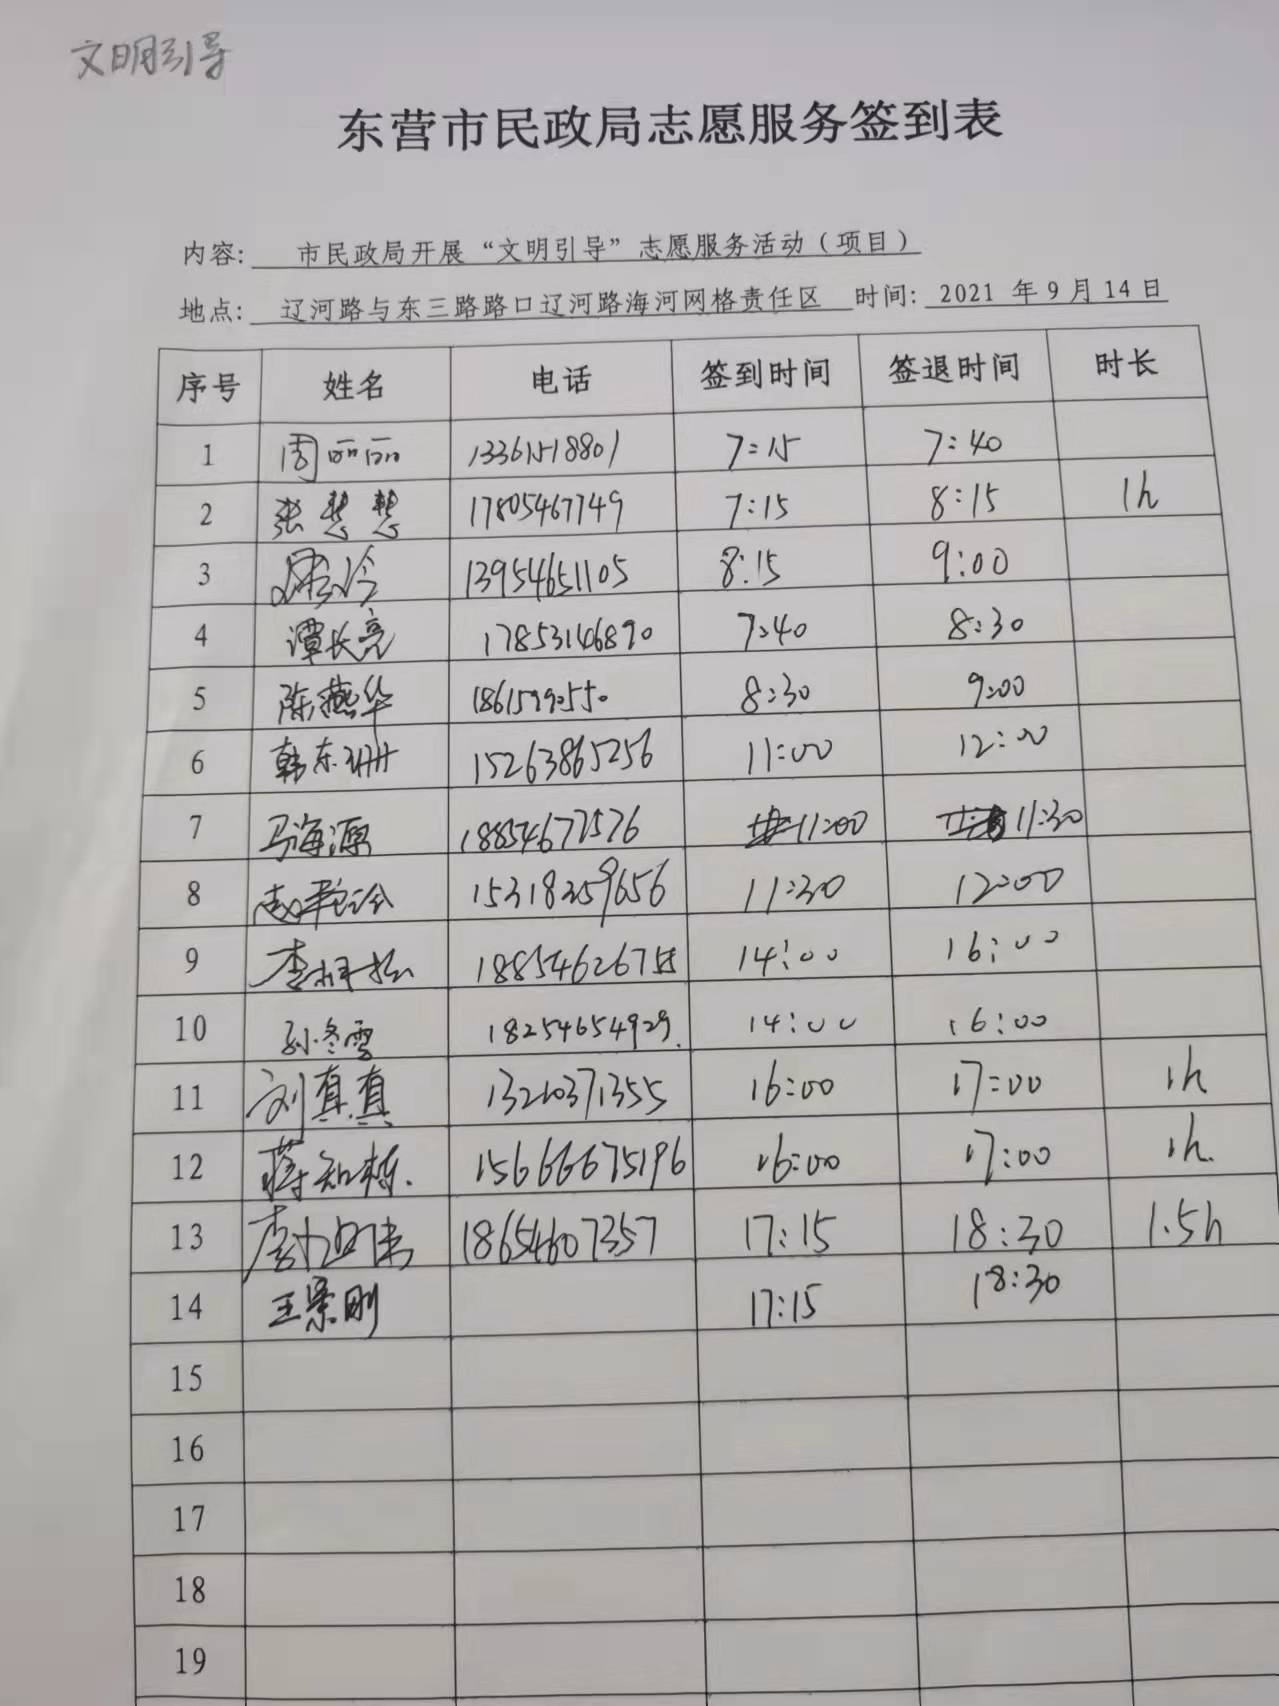 文明引导
东营市民政局志愿服务签到表
内容: 市民政局开展“文明引导”志愿服务活动(项目)
地点: 辽河路与东三路路口辽河路海河网格责任区 时间: 2021 年 9 月 14 日
序号 姓名 电话 签到时间 签退时间 时长
1 周丽丽 13361518801 7:15 7:40
2 张慧慧 17805467749 7:15 8:15 1h
3 13954651105 8:15 9:00
4 谭长亮 17853146890 7:40 8:30
5 陈燕华 8:30 9:00
6 韩东珊 15263865256 11:00 12:00
7 马海源 18854672576 11:00 11:30
8 15318259656 11:30 12:00
9 李 14:00 16:00
10 孙冬雪 18254654929 14:00 16:00
11 刘真真 13210371355 16:00 17:00 1h
12 蒋知栋 15666675196 16:00 17:00 1h.
13 李 18654607357 17:15 18:30 1.5h
14 王景刚 17:15 18:30
15
16
17
18
19